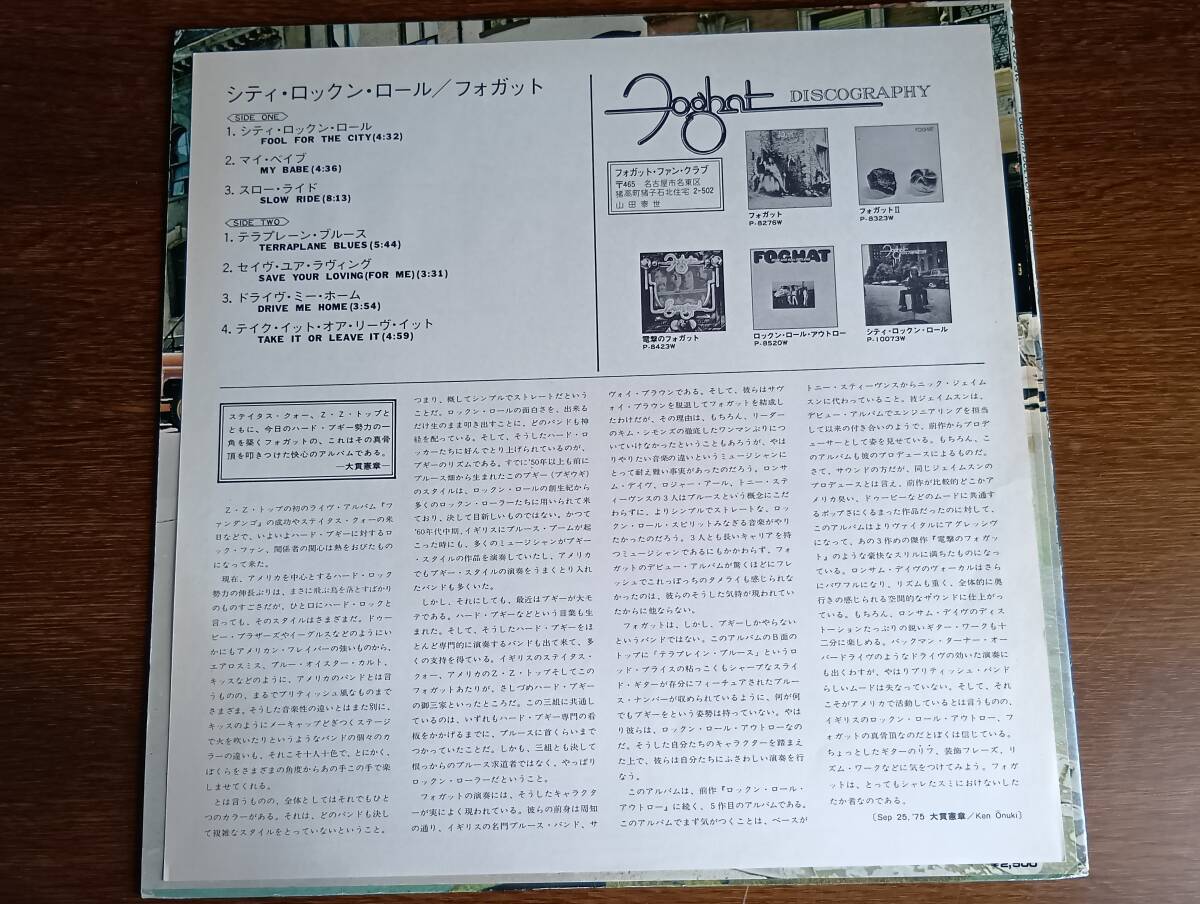 シティ・ロックン・ロール／フォガット
SIDE ONE
1. シティ・ロックン・ロール
FOOL FOR THE CITY(4:32)
2. マイ・ベイブ
MY BABE(4:36)
3. スロー・ライド
SLOW RIDE(8:13)
SIDE TWO
1. テラプレーン・ブルース
TERRAPLANE BLUES(5:44)
2. セイヴ・ユア・ラヴィング
SAVE YOUR LOVING(FOR ME)(3:31)
3. ドライヴ・ミー・ホーム
DRIVE ME HOME(3:54)
4. テイク・イット・オア・リーヴ・イット
TAKE IT OR LEAVE IT(4:59)
Foghat DISCOGRAPHY
フォガット・ファン・クラブ
〒465 名古屋市名東区
猪高町猪子石北住宅 2-502
山田泰世
フォガット
P-8276W
FOGHAT
フォガットⅡ
P-8323W
電撃のフォガット
P-8423W
FOGHAT
ロックン・ロール・アウトロー
P-8520W
シティ・ロックン・ロール
P-10073W
ステイタス・クォー、Z・Z・トップと
ともに、今日のハード・ブギー勢力の一
角を築くフォガットの、これはその真骨
頂を叩きつけた快心のアルバムである。
—大貫憲章—
Z・Z・トップの初のライヴ・アルバム『フ
ァンダンゴ』の成功やステイタス・クォーの来
日などで、いよいよハード・ブギーに対するロ
ック・ファン、関係者の関心は熱をおびたもの
になって来た。
現在、アメリカを中心とするハード・ロック
勢力の伸長ぶりは、まさに飛ぶ鳥を落とすばかり
のものすごさだが、ひと口にハード・ロックと
言っても、そのスタイルはさまざまだ。ドゥー
ビー・ブラザーズやイーグルスなどのようにい
かにもアメリカン・フレイバーの強いものから、
エアロスミス、ブルー・オイスター・カルト、
キッスなどのように、アメリカのバンドとは言
うものの、まるでブリティッシュ風なものまで
さまざま。そうした音楽性の違いとはまた別に、
キッスのようにメーキャップどぎつくステージ
で火を吹いたりというようなバンドの個々のカ
ラーの違いも、それこそ十人十色で、とにかく、
ぼくらをさまざまの角度からあの手この手で楽
しませてくれる。
とは言うものの、全体としてはそれでもひと
つのカラーがある。それは、どのバンドも決し
て複雑なスタイルをとっていないということ。
つまり、概してシンプルでストレートだという
ことだ。ロックン・ロールの面白さを、出来る
だけ生のまま叩き出すことに、どのバンドも神
経を配っている。そして、そうしたハード・ロ
ッカーたちに好んでとり上げられているのが、
ブギーのリズムである。すでに'50年以上も前に
ブルース畑から生まれたこのブギー（ブギウギ）
のスタイルは、ロックン・ロールの創生紀から
多くのロックン・ローラーたちに用いられて来
ており、決して目新しいものではない。かつて
'60年代中期、イギリスにブルース・ブームが起
こった時にも、多くのミュージシャンがブギー
・スタイルの作品を演奏していたし、アメリカ
でもブギー・スタイルの演奏をうまくとり入れ
たバンドも多くいた。
しかし、それにしても、最近はブギーが大モ
テである。ハード・ブギーなどという言葉も生
まれた。そして、そうしたハード・ブギーをほ
とんど専門的に演奏するバンドも出て来て、多
くの支持を得ている。イギリスのステイタス・
クォー、アメリカのZ・Z・トップそしてこの
フォガットあたりが、さしづめハード・ブギー
の御三家といったところだ。この三組に共通し
ているのは、いずれもハード・ブギー専門の看
板をかかげるまでに、ブルースに首くらいまで
つかっていたことだ。しかも、三組とも決して
根っからのブルース求道者ではなく、やっぱり
ロックン・ローラーだということ。
フォガットの演奏には、そうしたキャラクタ
ーが実によく現われている。彼らの前身は周知
の通り、イギリスの名門ブルース・バンド、サ
ヴォイ・ブラウンである。そして、彼らはサヴ
ォイ・ブラウンを脱退してフォガットを結成し
たわけだが、その理由は、もちろん、リーダー
のキム・シモンズの徹底したワンマンぶりにつ
いていけなかったということもあろうが、やは
りやりたい音楽の違いというミュージシャンに
とって耐え難い事実があったのだろう。ロンサ
ム・デイヴ、ロジャー・アール、トニー・ステ
ィーヴンスの3人はブルースという概念にこだ
わらずに、よりシンプルでストレートな、ロッ
クン・ロール・スピリットみなぎる音楽がやり
たかったのだろう。3人とも長いキャリアを持
つミュージシャンであるにもかかわらず、フォ
ガットのデビュー・アルバムが驚くほどにフレ
ッシュでこれっぽっちのタメライも感じられな
かったのは、彼らのそうした気持が現われてい
たからに他ならない。
フォガットは、しかし、ブギーしかやらない
というバンドではない。このアルバムのB面の
トップに「テラプレイン・ブルース」というロ
ッド・プライスの粘っこくもシャープなスライ
ド・ギターが存分にフィーチュアされたブルー
ス・ナンバーが収められているように、何が何
でもブギーをという姿勢は持っていない。やは
り彼らは、ロックン・ロール・アウトローなの
だ。そうした自分たちのキャラクターを踏まえ
た上で、彼らは自分たちにふさわしい演奏を行
なう。
このアルバムは、前作『ロックン・ロール・
アウトロー』に続く、5作目のアルバムである。
このアルバムでまず気がつくことは、ベースが
トニー・スティーヴンスからニック・ジェイム
スンに代わっていること。彼ジェイムスンは、
デビュー・アルバムでエンジニアリングを担当
して以来の付き合いのようで、前作からプロデ
ューサーとして姿を見せている。もちろん、こ
のアルバムも彼のプロデュースによるものだ。
さて、サウンドの方だが、同じジェイムスンの
プロデュースとは言え、前作が比較的どこかア
メリカ臭い、ドゥービーなどのムードに共通す
るポップさにくるまった作品だったのに対して、
このアルバムはよりヴァイタルにアグレッシヴ
になって、あの3作めの傑作『電撃のフォガッ
ト』のような豪快なスリルに満ちたものになっ
ている。ロンサム・デイヴのヴォーカルはさら
にパワフルになり、リズムも重く、全体的に奥
行きの感じられる空間的なサウンドに仕上がっ
ている。もちろん、ロンサム・デイヴのディス
トーションたっぷりの鋭いギター・ワークも十
二分に楽しめる。バックマン・ターナー・オー
バードライヴのようなドライヴの効いた演奏に
も出くわすが、やはりブリティッシュ・バンド
らしいムードは失なっていない。そして、それ
こそがアメリカで活動しているとは言うものの、
イギリスのロックン・ロール・アウトロー、フ
ォガットの真骨頂なのだとぼくは信じている。
ちょっとしたギターのリフ、装飾フレーズ、リ
ズム・ワークなどに気をつけてみよう。フォガ
ットは、とってもシャレたスミにおけないした
たか者なのである。
〔Sep 25, '75 大貫憲章／Ken Ōnuki〕
¥2,500